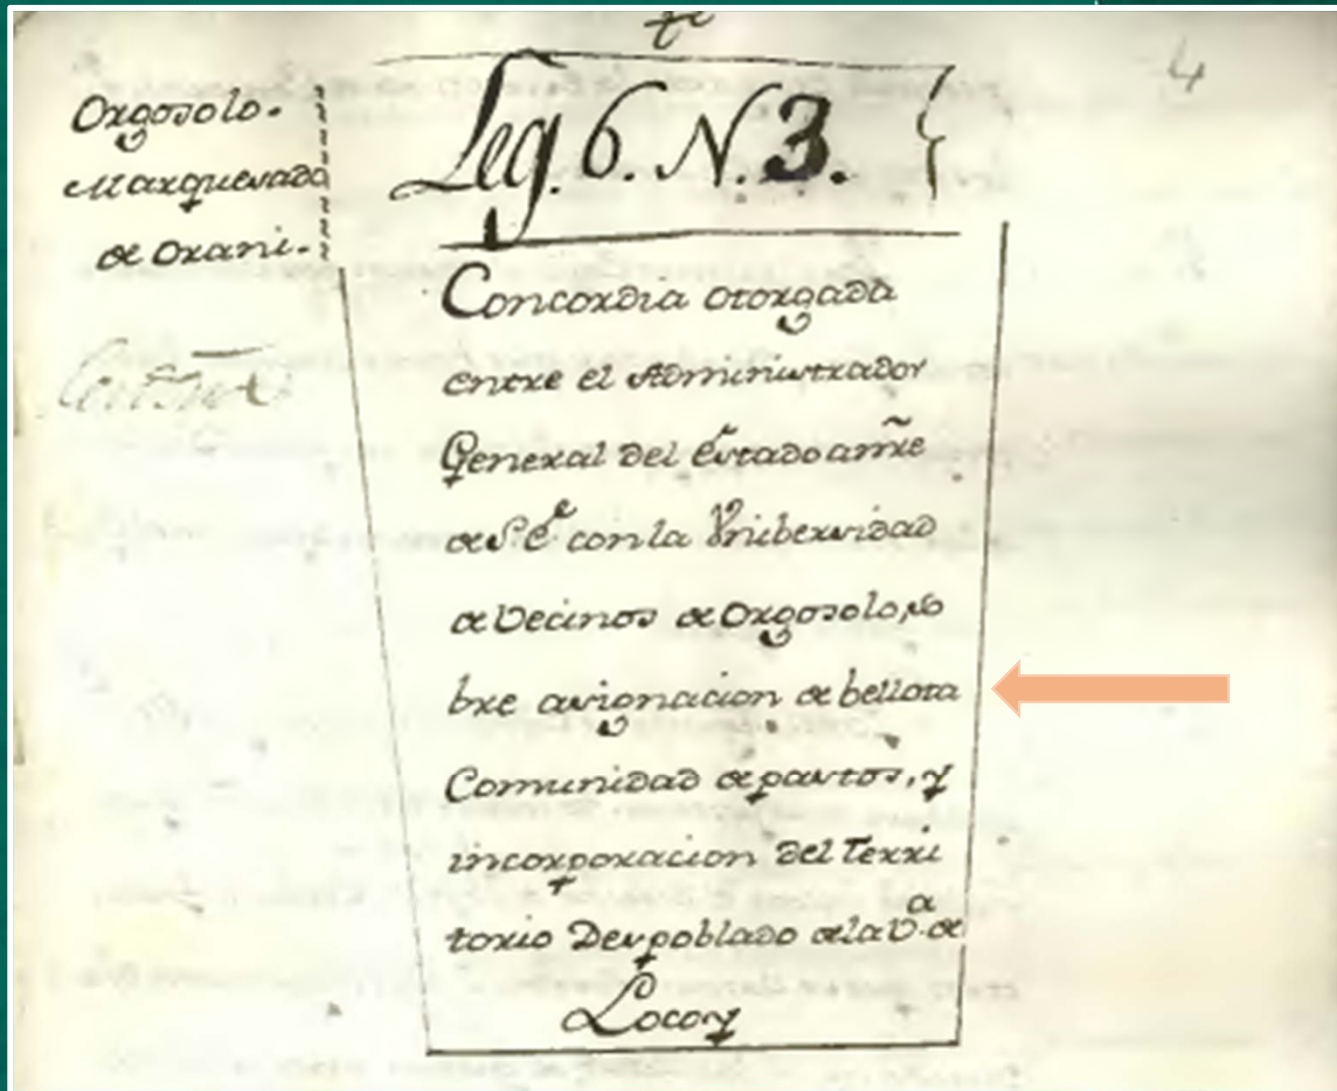 4
Orgosolo.
Marquesado
de Orani.
Leg. 6. N. 3.
Concordia otorgada
entre el Administrador
General del Estado amr̃e
de S. E.ᵉ con la Vnibersidad
de Vecinos de Orgosolo, so
bre asignacion de bellota
Comunidad de pastos, y
incorporacion del Terri
torio Despoblado de la V.ᵃ de
Locoy